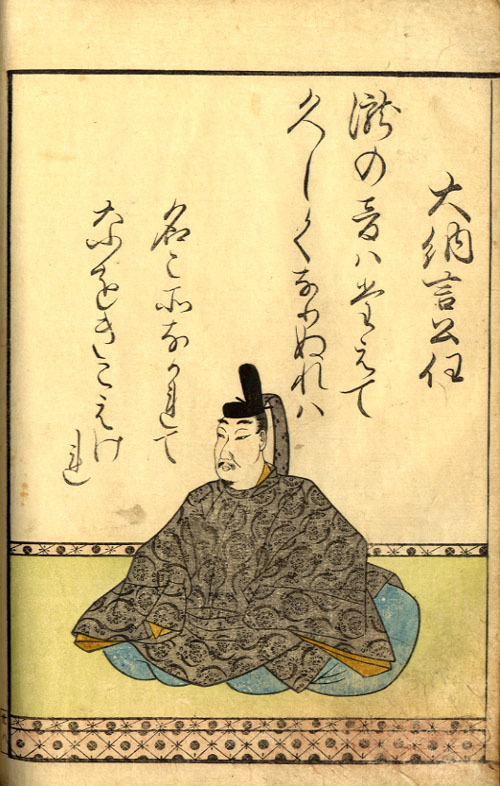 大納言公任
瀧の音ハたえて
久しくなりぬれハ
名こそながれて
なをきこえけ
れ